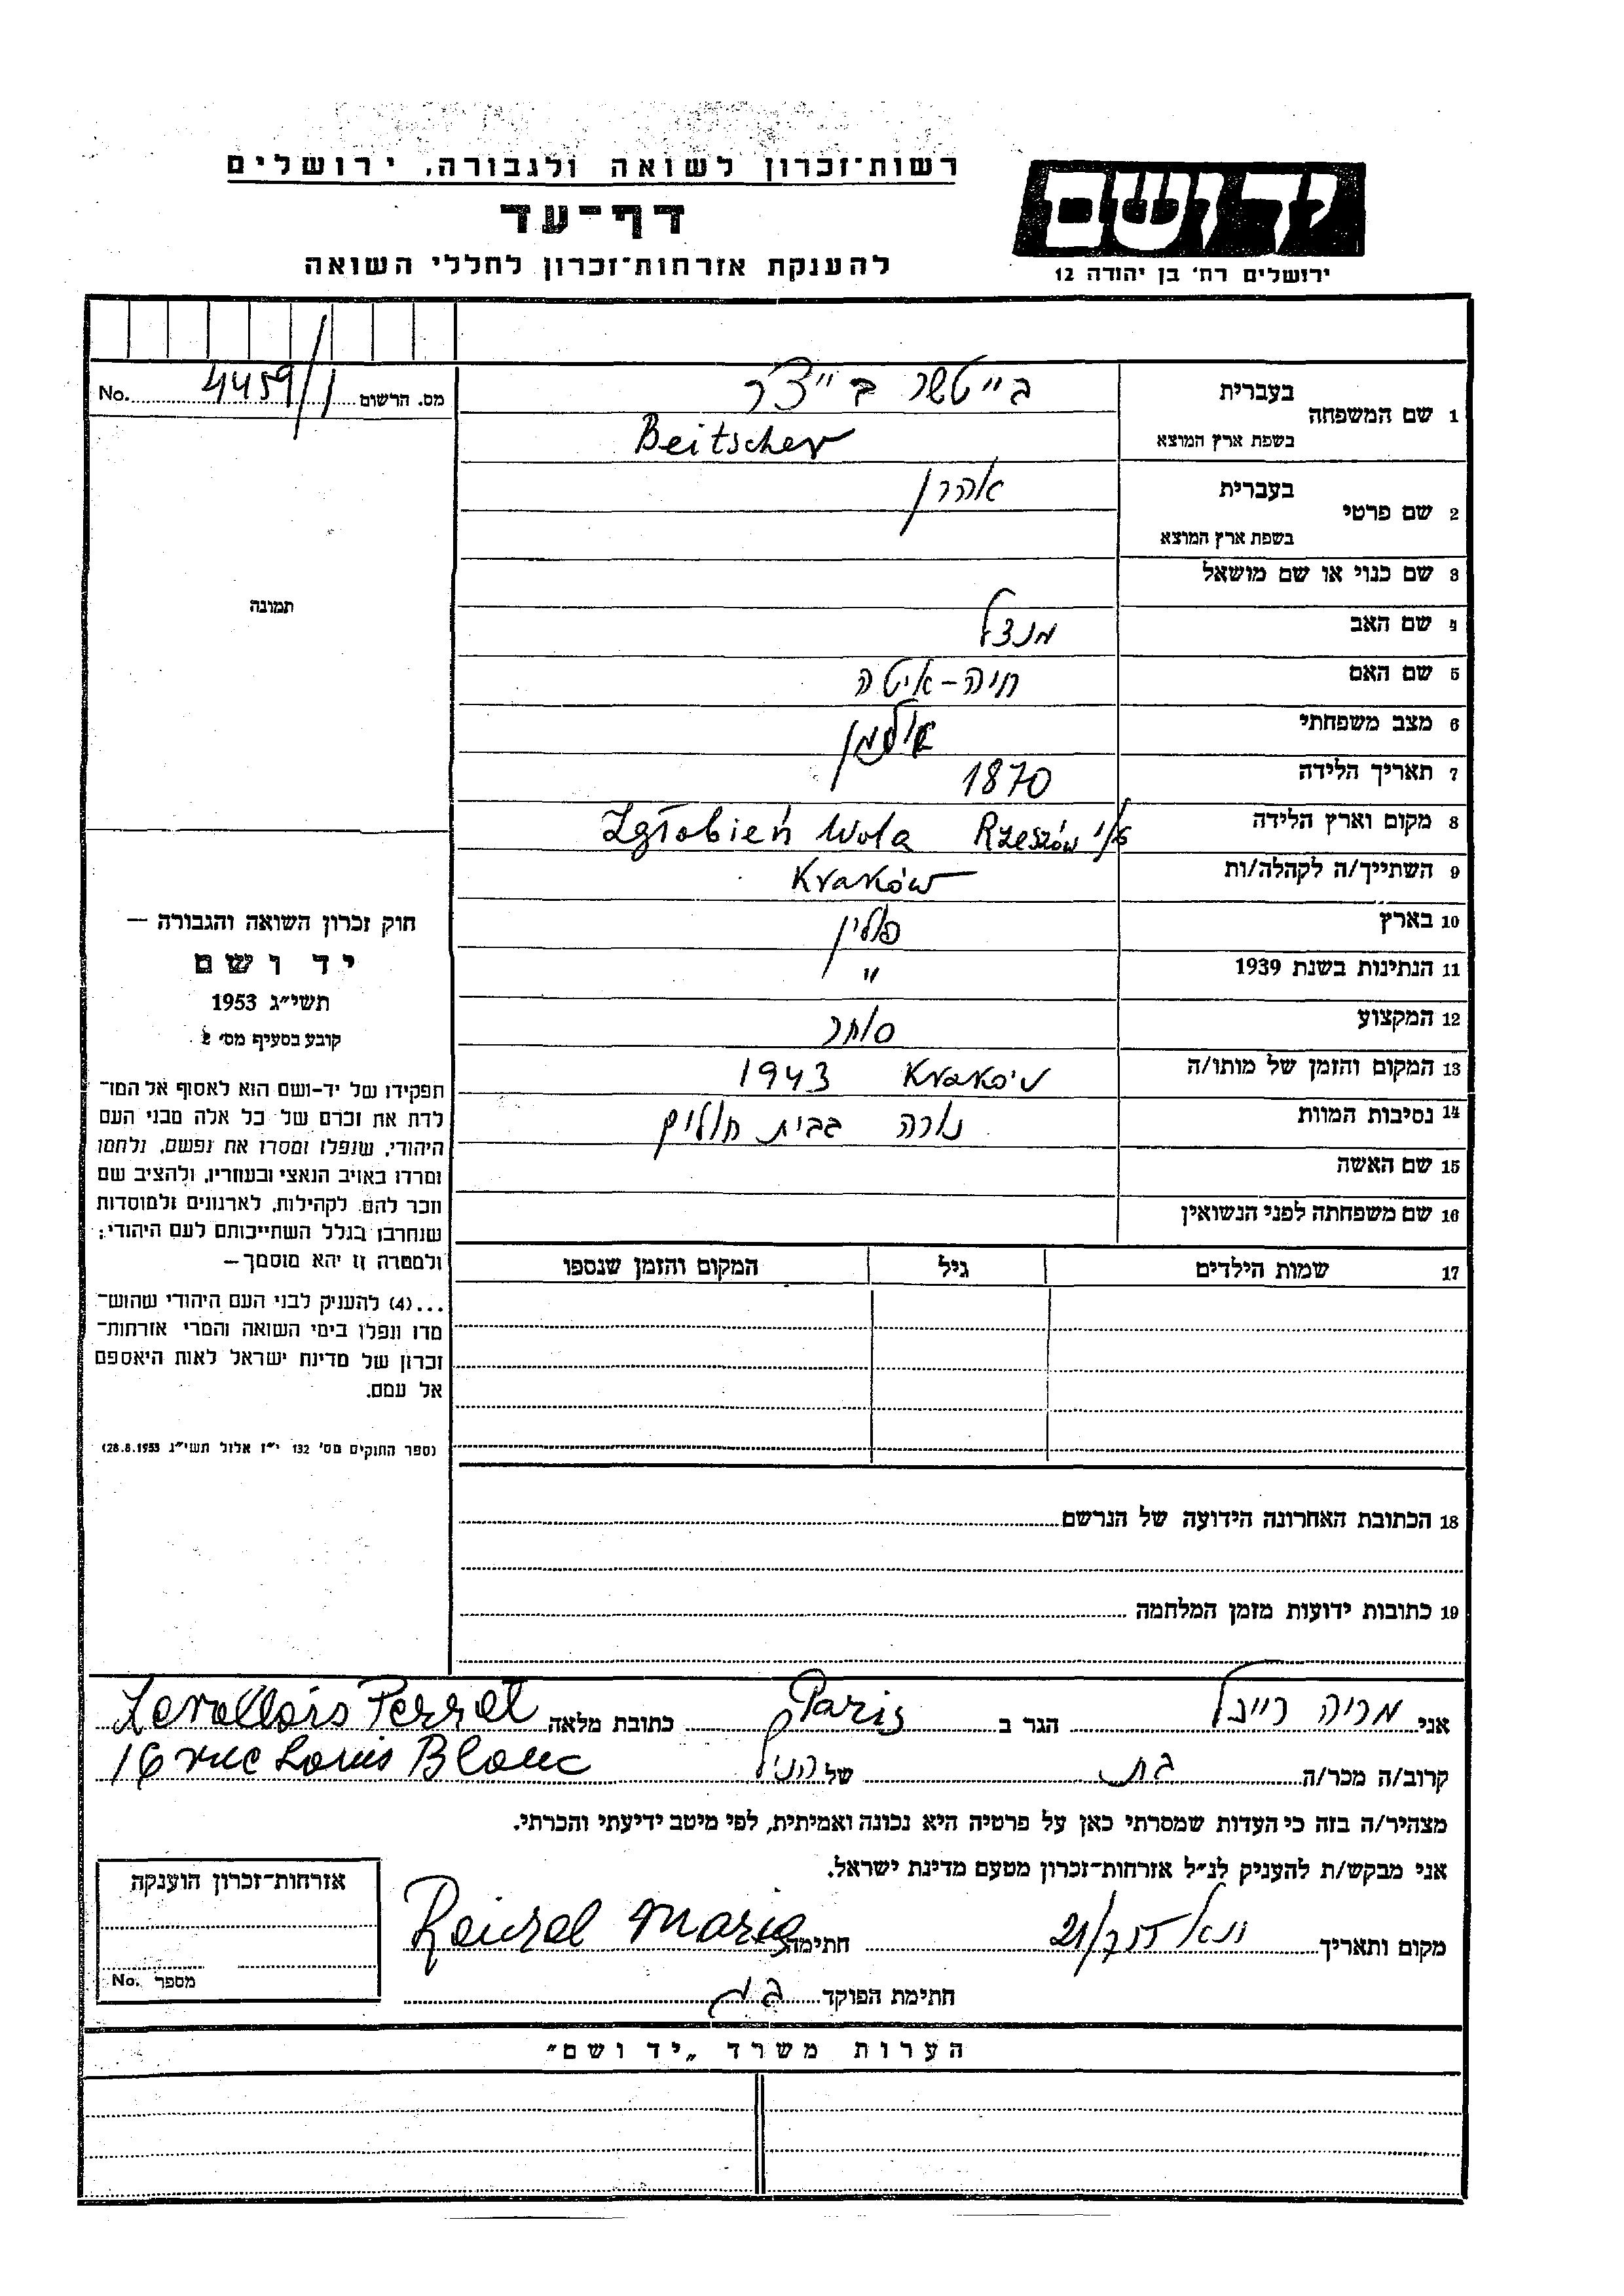 רשות־זכרון לשואה ולגבורה, ירושלים
דף־עד
להענקת אזרחות־זכרון לחללי השואה
יד ושם
ירושלים רח' בן יהודה 12
מס. הרשום 4459/1 No.
1 שם המשפחה
בעברית בייטשר בייצ'ר
בשפת ארץ המוצא Beitscher
2 שם פרטי
בעברית אהרן
בשפת ארץ המוצא
3 שם כנוי או שם מושאל
4 שם האב מנדל
5 שם האם חיה-איטה
6 מצב משפחתי אלמן
7 תאריך הלידה 1870
8 מקום וארץ הלידה ע/י Rzeszów Zgłobień Wola
9 השתייך/ה לקהלה/ות Kraków
10 בארץ פולין
11 הנתינות בשנת 1939 "
12 המקצוע סוחר
13 המקום והזמן של מותו/ה Kraków 1943
14 נסיבות המוות נורה בבית חולים
15 שם האשה
16 שם משפחתה לפני הנשואין
17 שמות הילדים גיל המקום והזמן שנספו
18 הכתובת האחרונה הידועה של הנרשם
19 כתובות ידועות מזמן המלחמה
תמונה
חוק זכרון השואה והגבורה —
יד ושם
תשי״ג 1953
קובע בסעיף מס' 2
תפקידו של יד-ושם הוא לאסוף אל המו־
לדת את זכרם של כל אלה מבני העם
היהודי, שנפלו ומסרו את נפשם, נלחמו
ומרדו באויב הנאצי ובעוזריו, ולהציב שם
וזכר להם, לקהילות, לארגונים ולמוסדות
שנחרבו בגלל השתייכותם לעם היהודי;
ולמטרה זו יהא מוסמך —
...(4) להעניק לבני העם היהודי שהוש־
מדו ונפלו בימי השואה והמרי אזרחות־
זכרון של מדינת ישראל לאות היאספם
אל עמם.
(ספר החוקים מס' 132 י״ז אלול תשי״ג 28.8.1953)
אני מריה ריינזל הגר ב Paris כתובת מלאה Levallois Perret
קרוב/ה מכר/ה בת של הנ״ל 16 rue Louis Blanc
מצהיר/ה בזה כי העדות שמסרתי כאן על פרטיה היא נכונה ואמיתית, לפי מיטב ידיעתי והכרתי.
אני מבקש/ת להעניק לנ״ל אזרחות־זכרון מטעם מדינת ישראל.
מקום ותאריך חתימה Reinzel Maria
חתימת הפוקד
אזרחות־זכרון הוענקה
מספר No.
הערות משרד „יד ושם״